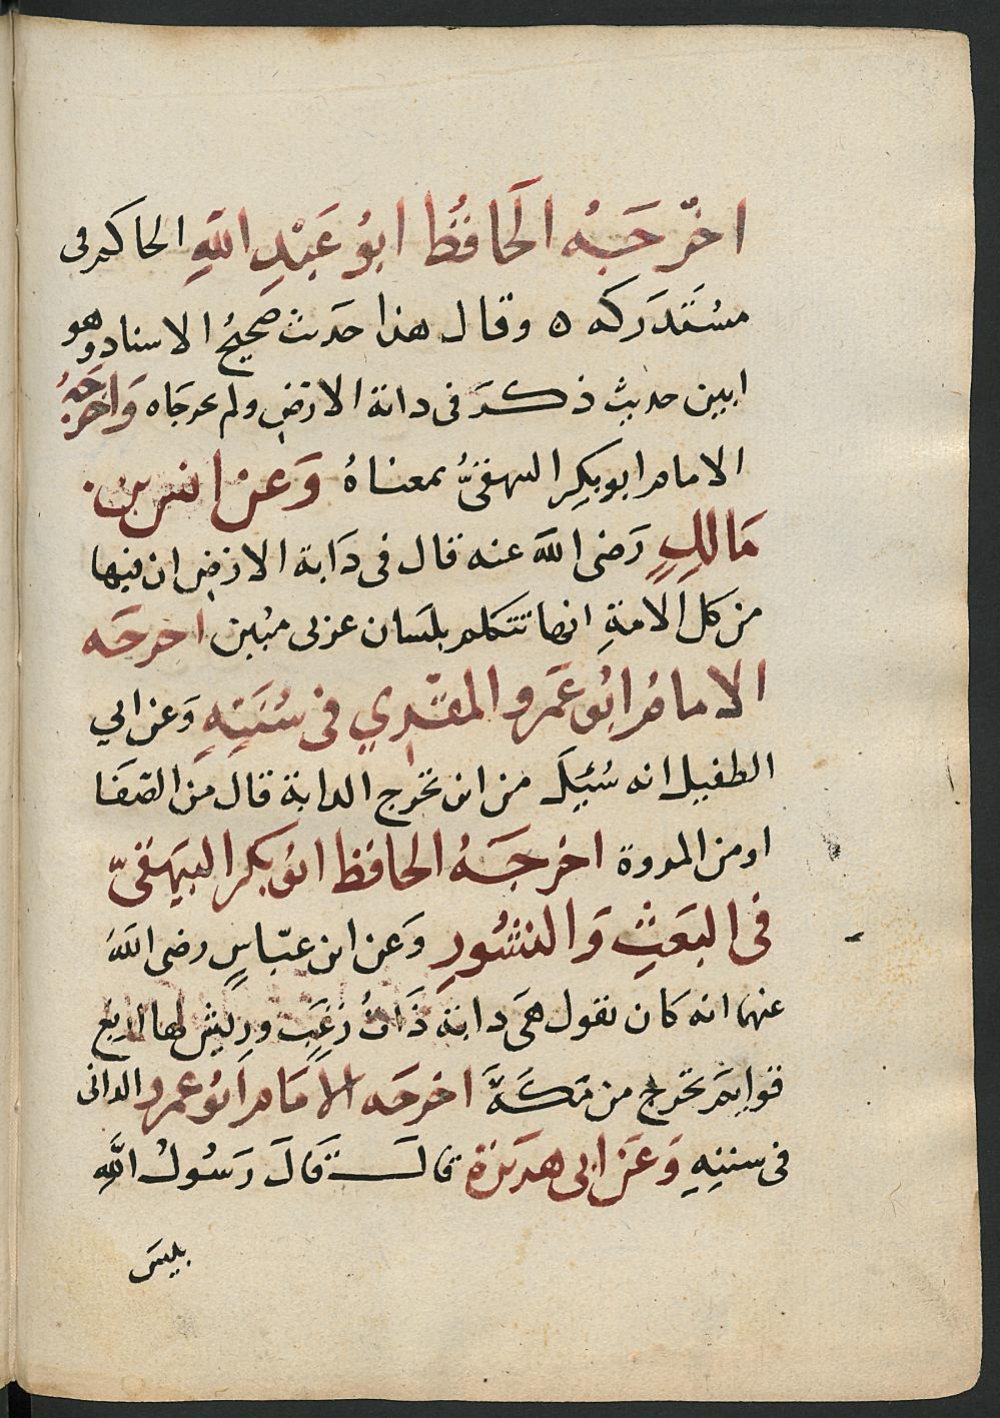 اخرجَهُ الحَافظُ ابُو عَبْدِ اللَّهِ الحاكم فى
مسُتَدرَكه ٥ وقال هذا حدَيث صَحيحُ الاسناد وهو
ابين حديثٍ ذكرَ فى دابة الارضِ ولم يخرجَاه وَاخرجَهُ
الامام ابو بكرِ البيهقىُّ بمعناهُ وَعن انس بن
مَالكٍ رَضى اللَّه عنه قال فى دَابة الارضِ ان فيها
من كل الامةِ انها تتكلم بلسَان عربى مبُين اخرجَه
الامامُ ابُو عَمرو المقرِي فى سُنَنِهِ وَعن ابي
الطفيل انه سُئِلَ من اين تخرج الدابة قال منَ الصّفَا
او من المروة اخرجَهُ الحافظ ابُو بكر البيَهقىّ
فى البَعَثِ وَالنشُورِ وَعن ابن عبّاسٍ رضى اللَّهُ
عنهما انه كان يقول هىَ دابة ذَاتُ زغَبٍ وريش لها اربع
قوايم تخرج من مَكةَ اخرجَه الامَام ابُو عمرو الدانى
فى سننِهِ وَعَن ابى هرَيرَة قالَ قَالَ رَسُولُ اللَّهِ